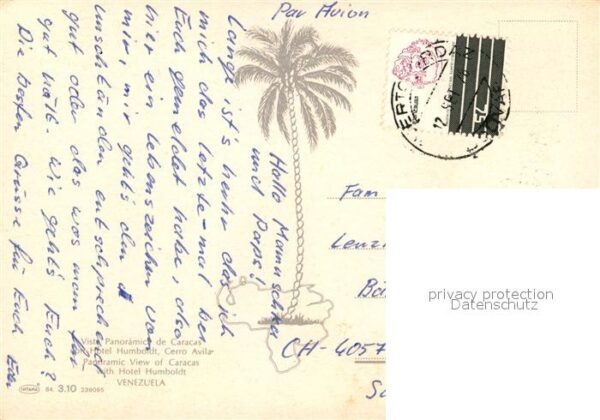 Par Avion
Hallo Mamuschka
und Paps!
Lange ist's hehr das ich
mich das letzte-mal bei
Euch gemeldet habe, also
hier ein Lebenszeichen von
mir, mir geht's den
umständen entsprechend
gut oder das was man für
gut hält. Wie geht's Euch?
Die besten Grüsse für Euch
Vista Panorámica de Caracas
Hotel Humboldt, Cerro Avila
Panoramic View of Caracas
with Hotel Humboldt
VENEZUELA
84. 3.10
Fam
CH-4057
privacy protection
Datenschutz